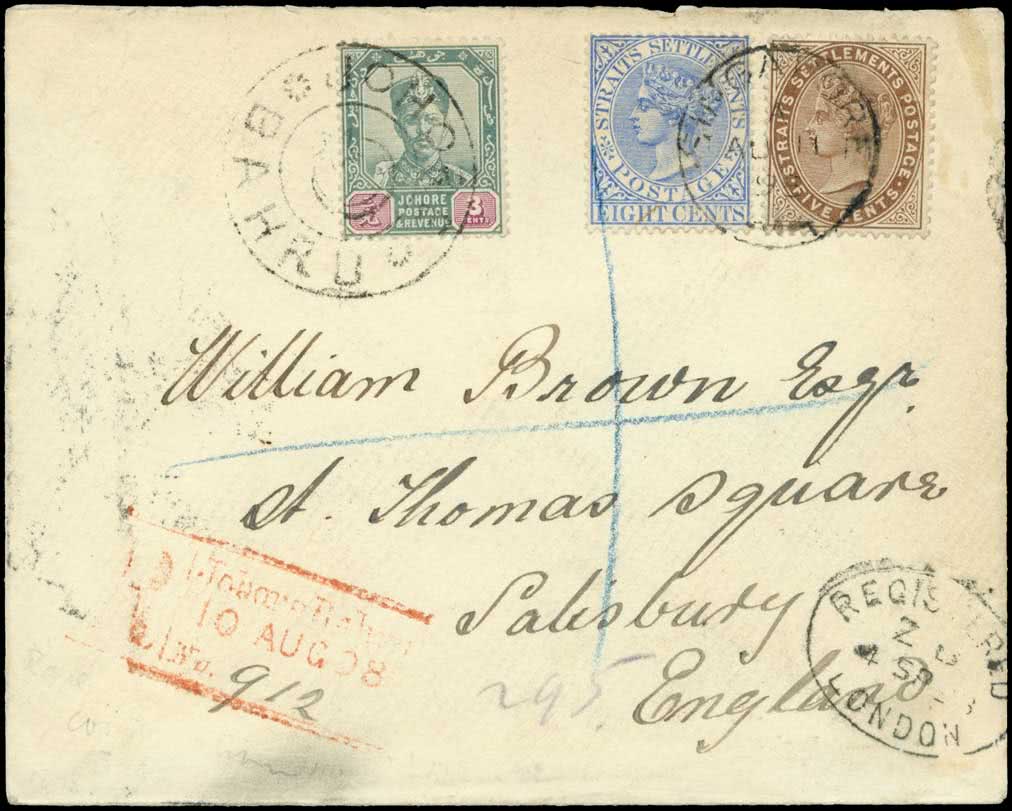 JOHORE BAHRU
JOHORE
POSTAGE
& REVENUE
3
CENTS
STRAITS SETTLEMENTS
POSTAGE
EIGHT CENTS
STRAITS SETTLEMENTS POSTAGE
FIVE CENTS
SINGAPORE
AU 11
William Brown Esqr.
St. Thomas Square
Salisbury
England
10 AUG 98
912
295
REGISTERED
4 SP
LONDON